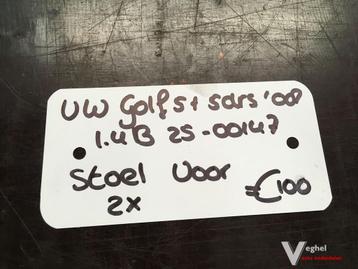 VW Golf 5+ 5drs '08
1.4B 25-00147
Stoel Voor
2x =€100
Veghel